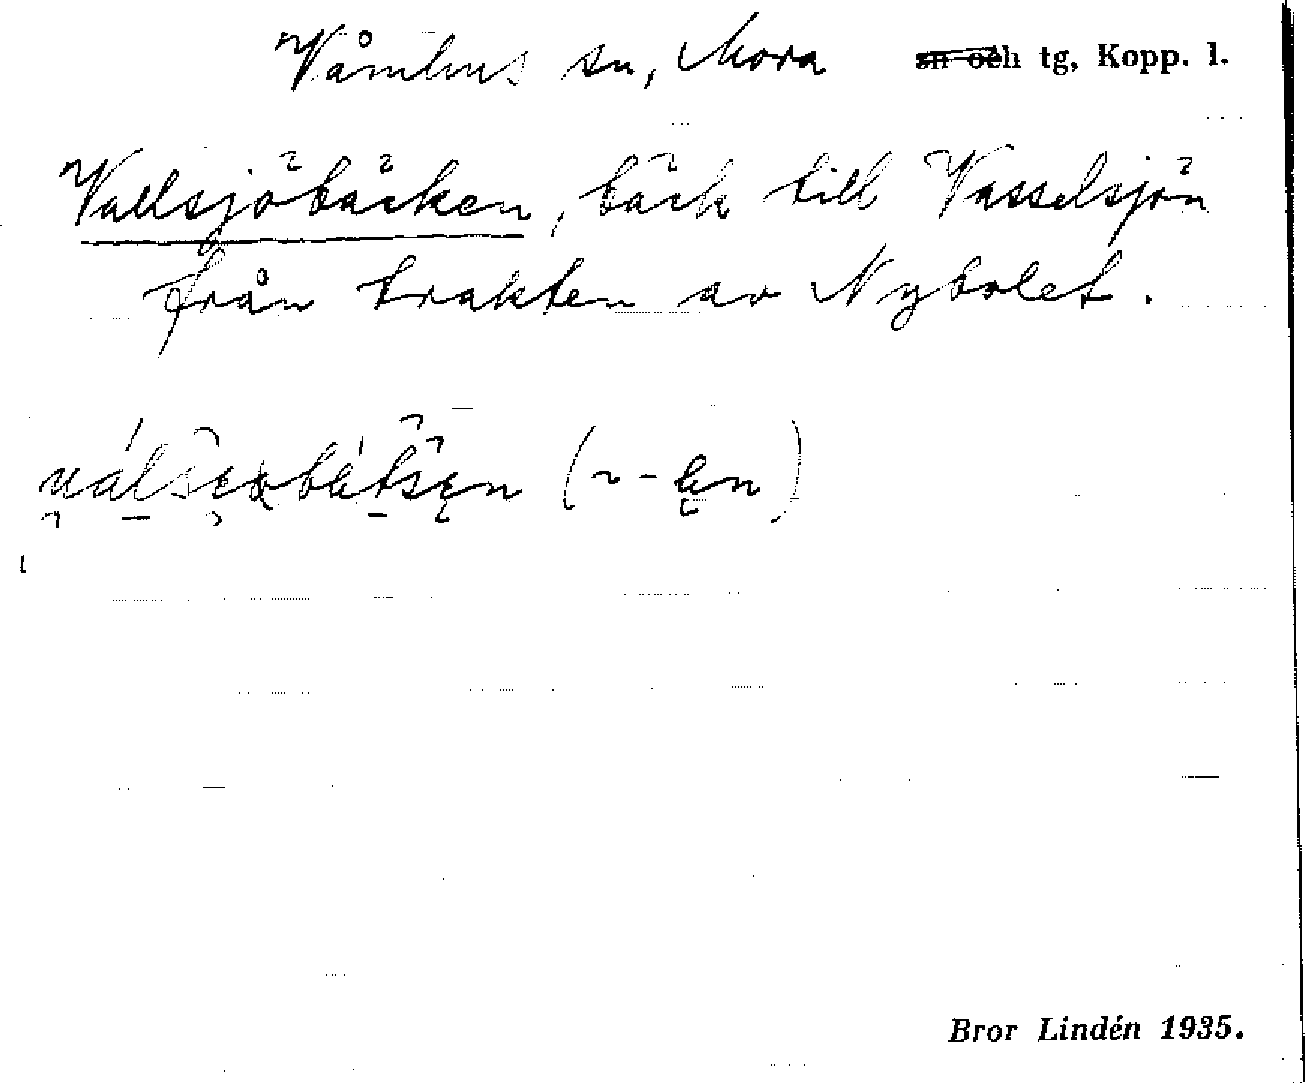 Våmhus sn, Mora sn och tg, Kopp. l.
Vallsjöbäcken, bäck till Vasselsjön
från trakten av Nybolet.
(~-en)
Bror Lindén 1935.